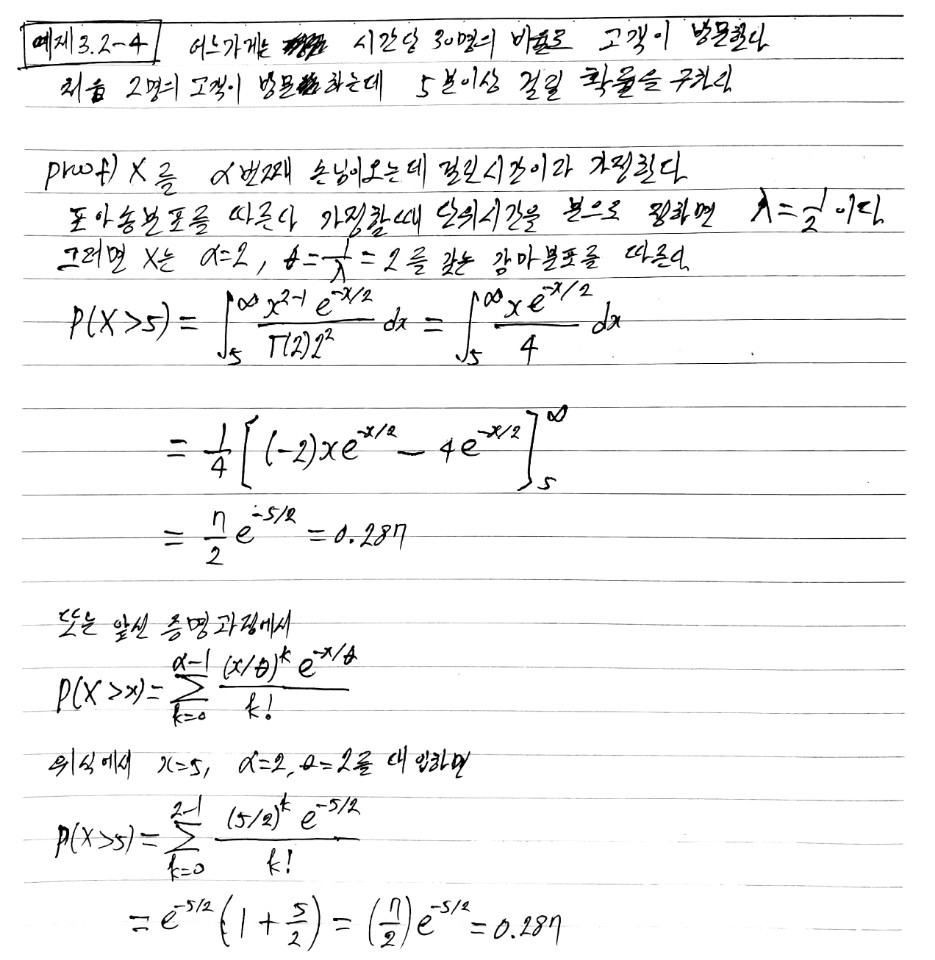 예제 3.2-4 어느가게는 시간당 30명의 비율로 고객이 방문한다
처음 2명의 고객이 방문하는데 5분이상 걸릴 확률을 구하라
proof) X를 α번째 손님이오는데 걸린시간이라 가정한다
포아송분포를 따른다 가정할때 단위시간을 분으로 정하면 λ=1/2 이다
그러면 X는 α=2, θ=1/λ=2를 갖는 감마분포를 따른다
P(X>5) = ∫_5^∞ x^{2-1} e^{-x/2} / Γ(2)2^2 dx = ∫_5^∞ x e^{-x/2} / 4 dx
= 1/4 [(-2)xe^{-x/2} - 4e^{-x/2}]_5^∞
= 7/2 e^{-5/2} = 0.287
또는 앞선 증명과정에서
P(X>x) = Σ_{k=0}^{α-1} (x/θ)^k e^{-x/θ} / k!
위식에서 x=5, α=2, θ=2를 대입하면
P(X>5) = Σ_{k=0}^{2-1} (5/2)^k e^{-5/2} / k!
= e^{-5/2} (1 + 5/2) = (7/2) e^{-5/2} = 0.287